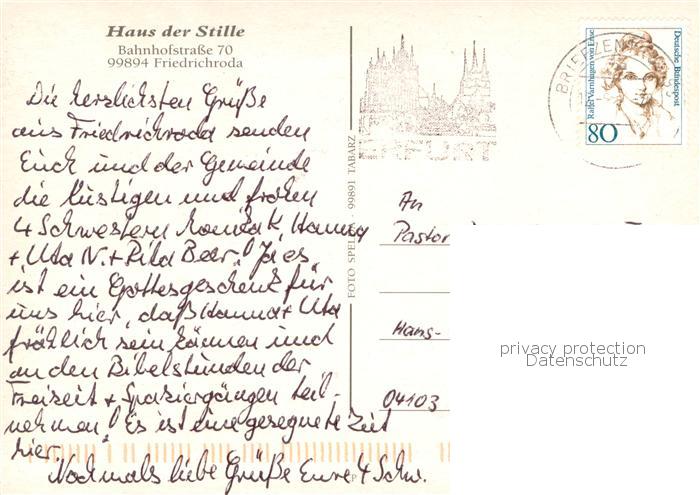 Haus der Stille
Bahnhofstraße 70
99894 Friedrichroda
Die herzlichsten Grüße
aus Friedrichroda senden
Euch und der Gemeinde
die lustigen und frohen
4 Schwestern Monika K, Hanna
+ Uta N. + Rita Beer! Ja es
ist ein Gottesgeschenk für
uns hier, daß Hanna + Uta
fröhlich sein können und
an den Bibelstunden der
Freizeit + Spaziergängen teil-
nehmen! Es ist eine gesegnete Zeit
hier.
Nochmals liebe Grüße Eure 4 Schw.
FOTO 99891 TABARZ
ERFURT
BRIEFZEN
80
Rahel Varnhagen von Ense
Deutsche Bundespost
An
Pastor
Hans-
04103
privacy protection
Datenschutz